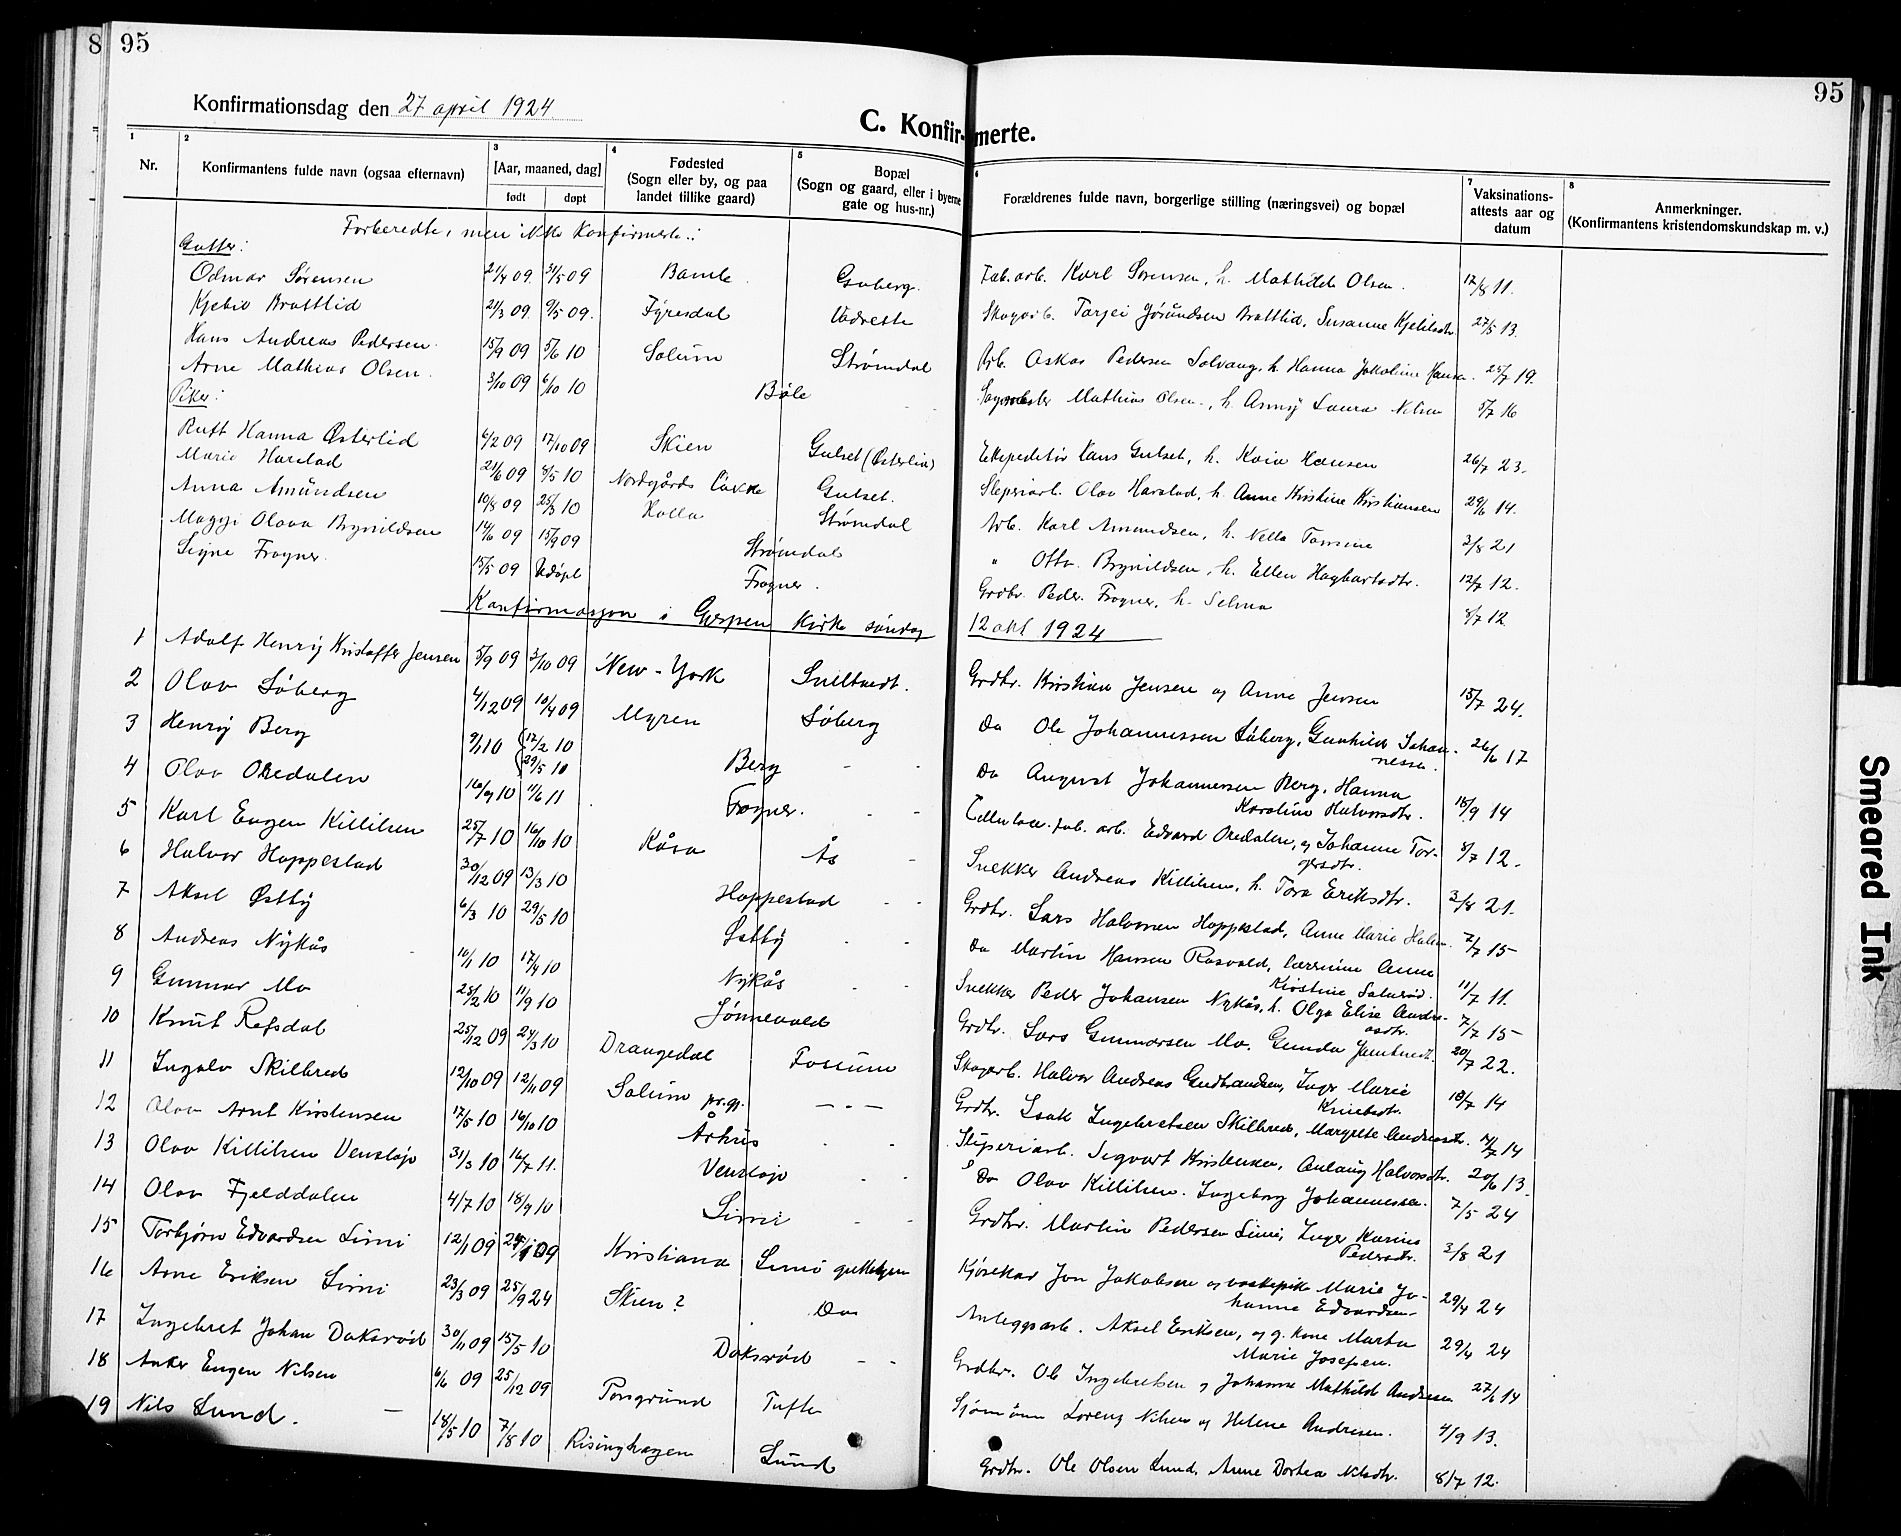 8 95
95
Konfirmationsdag den 27 april 1924
C. Konfirmerte.
1 2 3 4 5 6 7 8
Nr. Konfirmantens fulde navn (ogsaa efternavn) [Aar, maaned, dag] født døpt Fødested (Sogn eller by, og paa landet tillike gaard) Bopæl (Sogn og gaard, eller i byerne gate og hus-nr.) Forældrenes fulde navn, borgerlige stilling (næringsvei) og bopæl Vaksinations-attests aar og datum Anmerkninger. (Konfirmantens kristendomskundskap m. v.)
Forberedte, men ikke konfirmerte:
Gutter:
Odmar Sørensen 21/4 09 31/5 09 Bamle Gulberg. Fab.arb. Karl Sørensen, h. Mathilde Olsen. 17/8 11.
Brattlid 21/3 09. 9/5 09. Fyresdal Skogarb. Tarjei Jørundsen Brattlid, Susanne Kjetilsdtr. 27/5 13.
Hans Andreas Pedersen. 15/9 09 5/6 10 Solum Strømdal Arb. Oskar Pedersen Solvang, h. Hanna Jakobine Hansen. 25/7 19.
Arne Mathias Olsen. 3/10 09 6/10 10 Bøle - - Mathias Olsen, h. Anny Laura Nilsen 5/7 16
Piker:
Rutt Hanna Østerlid 6/2 09 17/10 09 Skien Gulset (Østerlid) Ekspeditør Hans Gulset, h. Kaia Hansen 26/7 23.
Marie Harstad 21/6 09 8/5 10 Nordgårds Gulset. Sliperiarb. Olav Harstad, h. Anne Kirstine Kristiansen 29/6 14.
Anna Amundsen 10/8 09 25/3 10 Holla Strømdal Arb. Karl Amundsen, h. Nella Tomine 3/8 21
Maggi Olava Brynildsen 14/6 09 15/9 09 Strømdal " Otto Brynildsen, h. Ellen Hagbartsdtr. 12/7 12.
Signe Frogner. 15/5 09 Udøpt Frogner. Grdbr. Peder Frogner, h. Selma 8/7 12
Konfirmasjon i Gjerpen Kirke søndag 12 okt 1924
1 Adolf Henry Kristoffer Jensen 5/9 09 3/10 09 New-York Grdbr. Kristian Jensen og Anna Jensen 15/7 24.
2 Olav Løberg 4/12 09 10/4 09 Myren Løberg Do Ole Johannessen Løberg, Gunhild Johannessen. 26/6 17
3 Henry Berg 9/1 10 (17/2 10 29/5 10 Berg - - Do August Johannessen Berg, Hanna Karoline Halvorsdtr. 18/9 14
4 Olav Oredalen 16/9 10 11/6 11 Frogner. - - Cellulose.fab.arb. Edvard Oredalen, og Johanne Torgersdtr. 8/7 12.
5 Karl Eugen Killilsen 25/7 10 16/10 10 Kåsa Ås - Snekker Andreas Killilsen, h. Tora Eriksdtr. 3/8 21.
6 Halvor Hoppestad 30/12 09 13/3 10 Hoppestad - - Grdbr. Lars Halvorsen Hoppestad, Anne Marie Halv. 7/7 15
7 Aksel Østby 6/3 10 29/5 10 Østby - - Do Martin Hansen Rasvald, Anna Kirstine 11/7 11.
8 Andreas Nykås 16/1 10 17/4 10 Nykås - - Snekker Peder Johansen Nykås, h. Olga Elise Andreasdtr. 7/7 15
9 Gunnar Mo 25/2 10 11/9 10 Jønnevald Grdbr. Lars Gunnarsen Mo. Gunda 20/7 22.
10 Knut Refsdal 25/12 09 24/3 10 Drangedal Fossum Skogarb. Halvor Andreas Gudbrandsen, Inger Marie Knutsdtr. 18/7 14
11 Ingolv Skilbred 12/10 09 12/11 09 Solum pr.gj. - . - Grdbr. Isak Ingebretsen Skilbred, Margrete Andreasdtr. 14/7 14
12 Olav Arnt Kristensen 17/5 10 16/10 10 Århus - - Sliperiarb. Sigvart Kristensen, Anlaug Halvorsdtr. 20/6 13.
13 Olav Killilsen Venstøp 31/3 10 16/7 11. Venstøp - - Do Olav Killilsen. Ingeborg Johannessen. 7/5 24
14 Olav Fjelddalen 4/7 10 18/9 10 Limi - - Grdbr. Martin Pedersen Limi, Inger Karine Pedersdtr. 3/8 21
15 Torbjørn Edvardsen Limi 12/1 09 09 Kristiana Limi Kjørekar Jon Jakobsen og Marie Johanne Edvardsen 29/4 24
16 Arne Eriksen Limi 23/3 09 25/9 24 Skien? Do Anleggsarb. Aksel Eriksen, og g. kone Marta Marie Josefsen. 29/4 24
17 Ingebret Johan Doksrød 30/11 09 15/5 10 Doksrød - - Grdbr. Ole Ingebretsen og Johanne Mathilde Andersen 27/6 14
18 Anker Eugen Nilsen 6/6 09 25/12 09 Porsgrund Tufte Sjømann Lorens Nilsen og Helene Andresen. 4/9 13.
19 Nils Lund. - 18/5 10 7/8 10 Risinghagen Lund Grdbr. Ole Olsen Lund, Anne Dorthea Nilsdtr. 8/7 12.
Smeared Ink